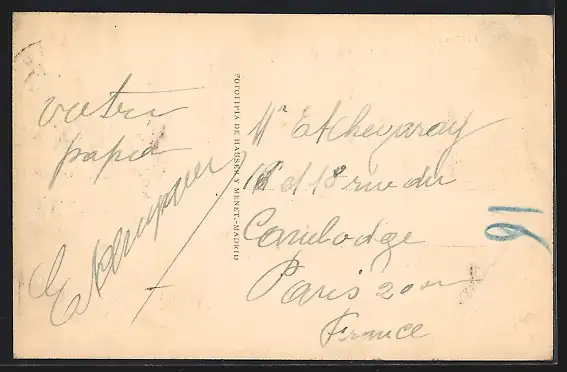 votre
papa
FOTOTIPIA DE HAUSER Y MENET.-MADRID
Mª Etchegaray
16 et 18 rue du
Cambodge
Paris 20
France
91